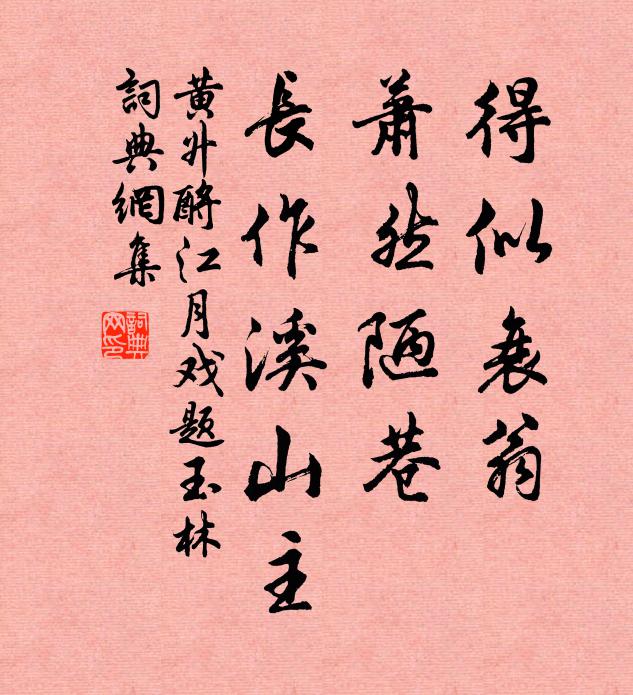 得似衰翁
蕭然陋巷
長作溪山主
黄升酹江月戏题玉林
詞典網集
詞典網印